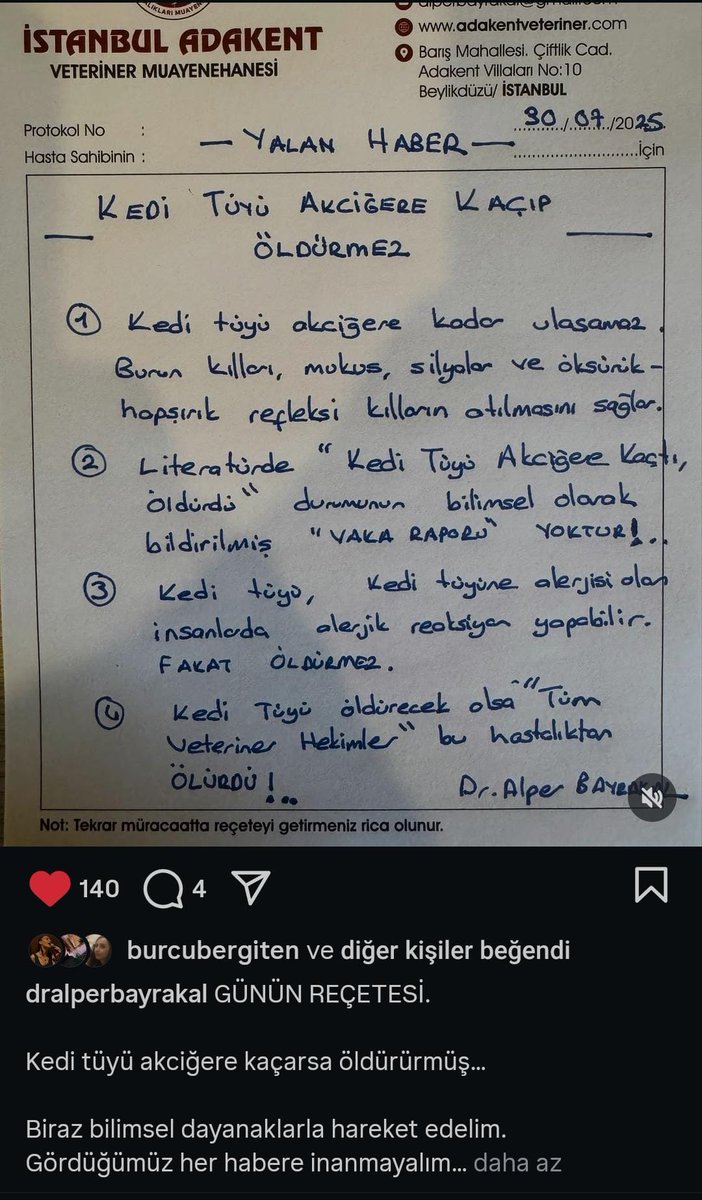 www.adakentveteriner.com
İSTANBUL ADAKENT
VETERİNER MUAYENEHANESİ
Barış Mahallesi. Çiftlik Cad.
Adakent Villaları No:10
Beylikdüzü/ İSTANBUL
Protokol No :
30/07/2025
Hasta Sahibinin :
— YALAN HABER —
İçin
KEDİ TÜYÜ AKCİĞERE KAÇIP
ÖLDÜRMEZ
1 Kedi tüyü akciğere kadar ulaşamaz.
Burun kılları, mukus, silyalar ve öksürük-
hapşırık refleksi kılların atılmasını sağlar.
2 Literatürde "Kedi Tüyü Akciğere Kaçtı,
öldürdü" durumunun bilimsel olarak
bildirilmiş "VAKA RAPORU" YOKTUR!..
3 Kedi tüyü, Kedi tüyüne alerjisi olan
insanlarda alerjik reaksiyon yapabilir.
FAKAT ÖLDÜRMEZ.
4 Kedi Tüyü öldürecek olsa "Tüm
Veteriner Hekimler" bu hastalıktan
ÖLÜRDÜ!..
Dr. Alper BAYRAKAL
Not: Tekrar müracaatta reçeteyi getirmeniz rica olunur.
140
4
burcubergiten ve diğer kişiler beğendi
dralperbayrakal GÜNÜN REÇETESİ.
Kedi tüyü akciğere kaçarsa öldürürmüş...
Biraz bilimsel dayanaklarla hareket edelim.
Gördüğümüz her habere inanmayalım... daha az